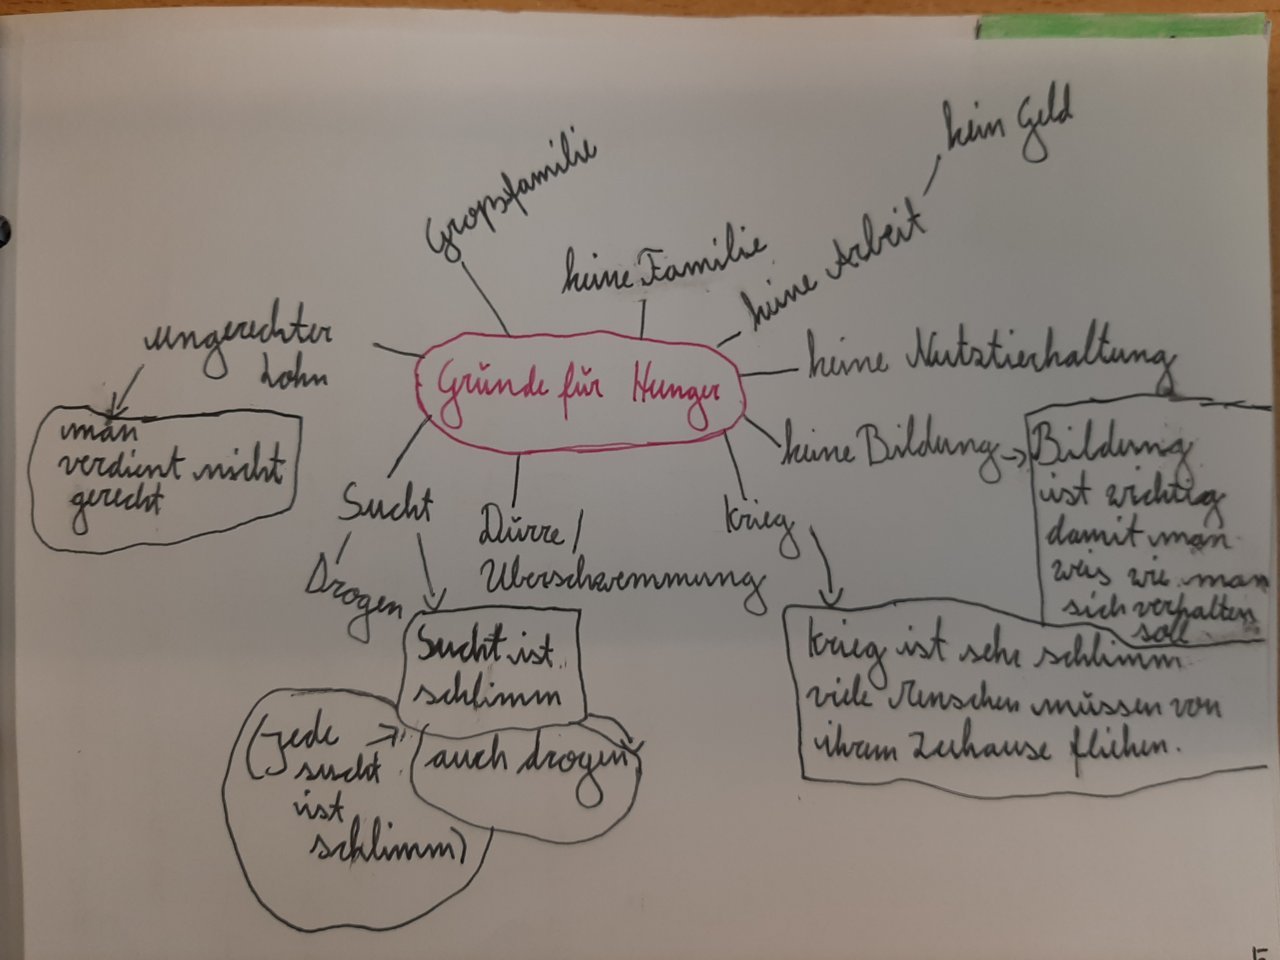 kein Geld
Großfamilie
keine Familie
keine Arbeit
ungerechter
Lohn
Gründe für Hunger
keine Nutztierhaltung
man
verdient nicht
gerecht
keine Bildung
Bildung
ist wichtig
damit man
weis wie man
sich verhalten
soll
Sucht
Drogen
Dürre/
Überschwemmung
Krieg
Sucht ist
schlimm
auch drogen
(jede
sucht
ist
schlimm)
Krieg ist sehr schlimm
viele Menschen müssen von
ihram Zuhause fliehen.